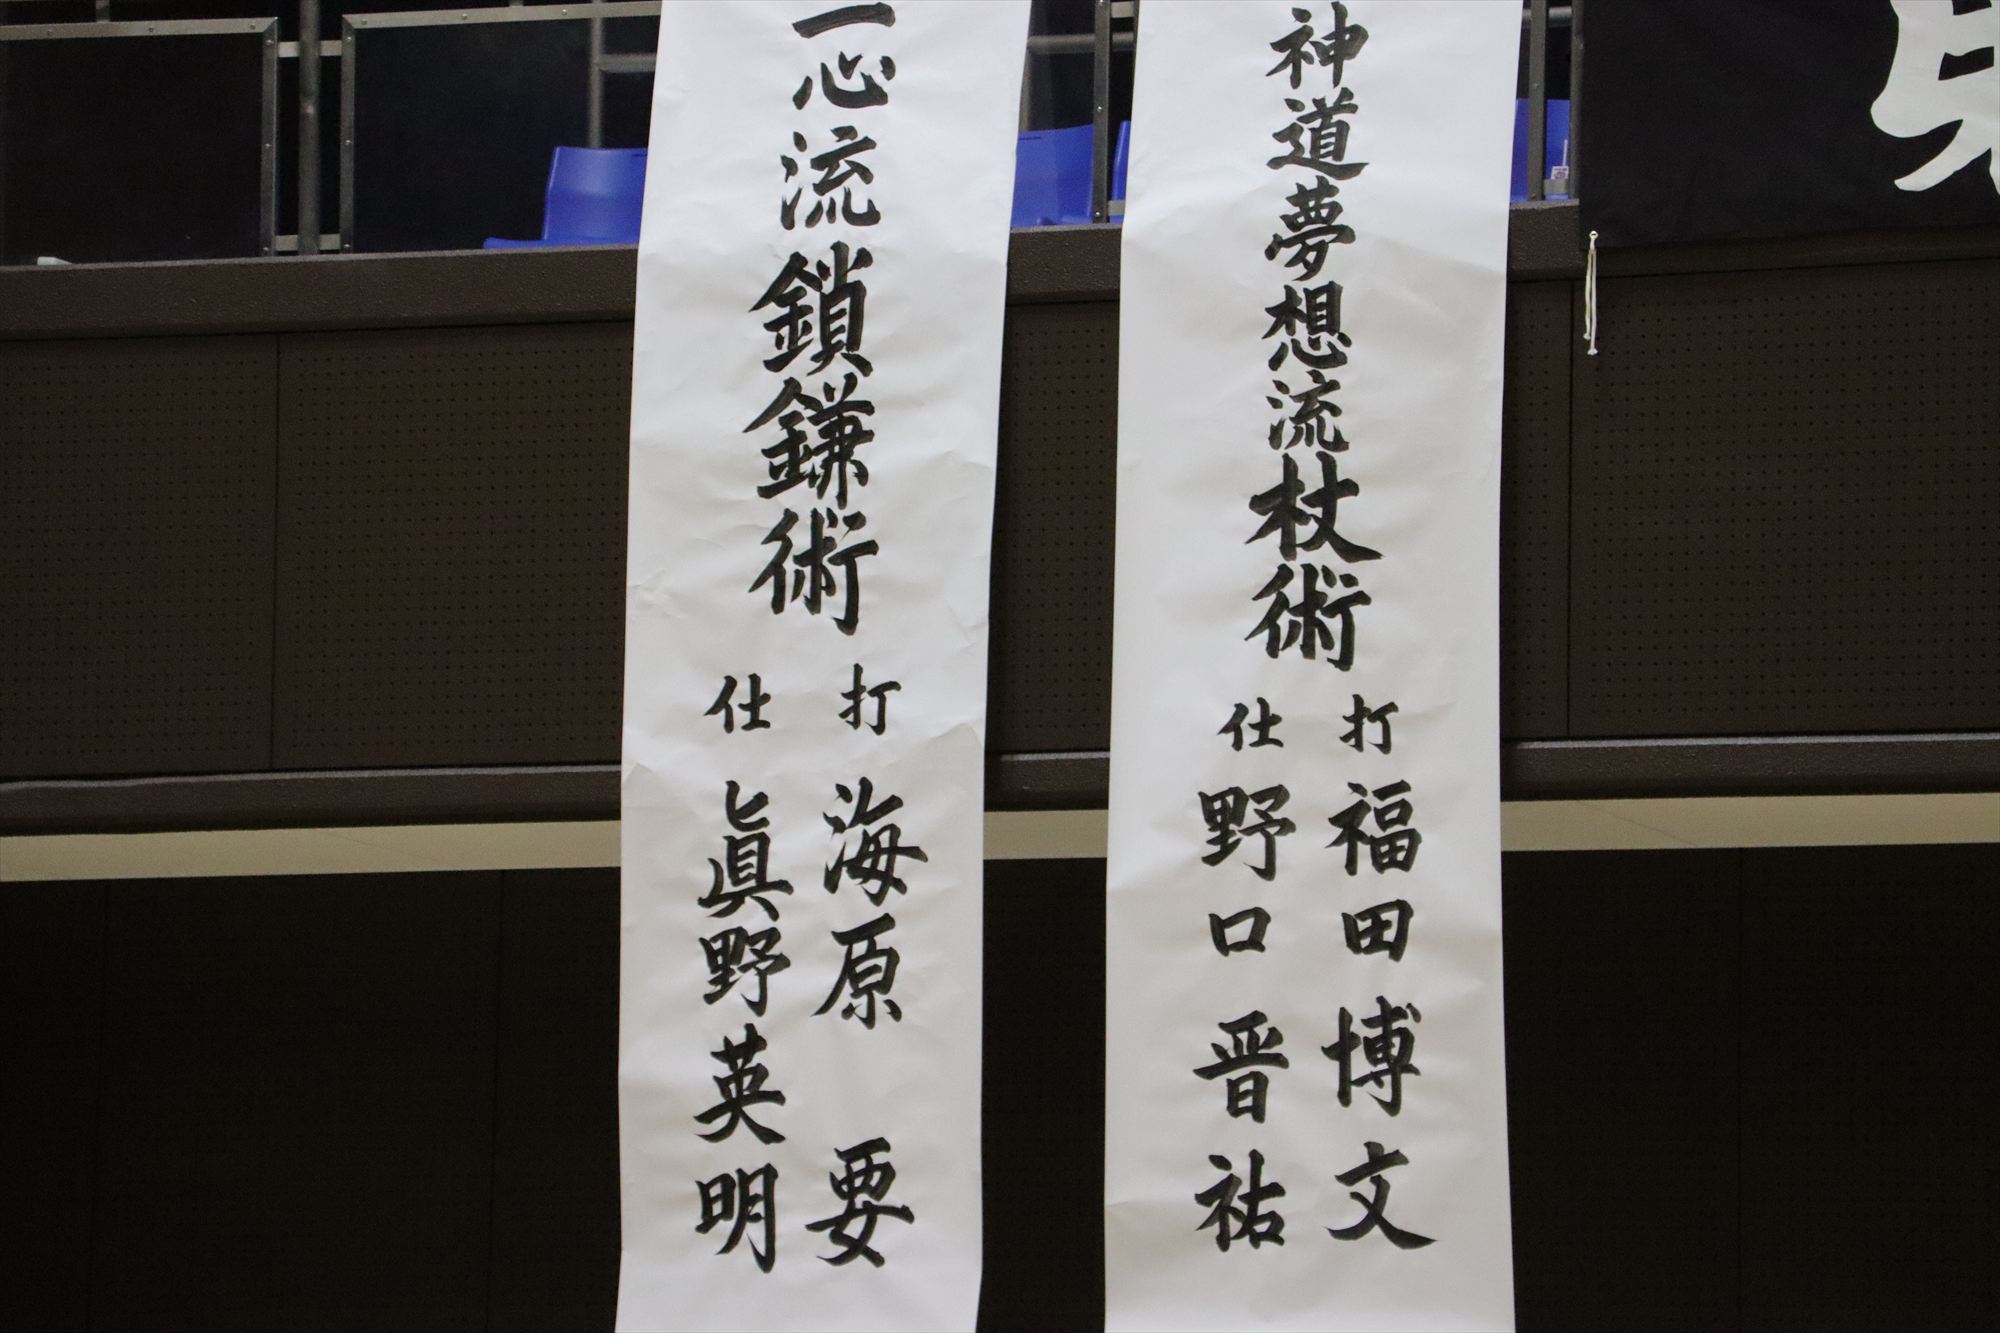 神道夢想流杖術
打 福田博文
仕 野口晋祐
一心流鎖鎌術
打 海原 要
仕 眞野英明